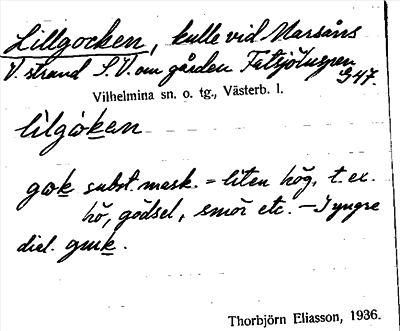 Lillgocken, kulle vid Marsåns
V. strand S.V. om gården Fätsjöluspen
G47.
Vilhelmina sn. o. tg., Västerb. l.
lilgơk̲an
gơk̲ subst. mask. = liten hög, t. ex.
hö, gödsel, smör etc. – I yngre
dial. guk̲.
Thorbjörn Eliasson, 1936.